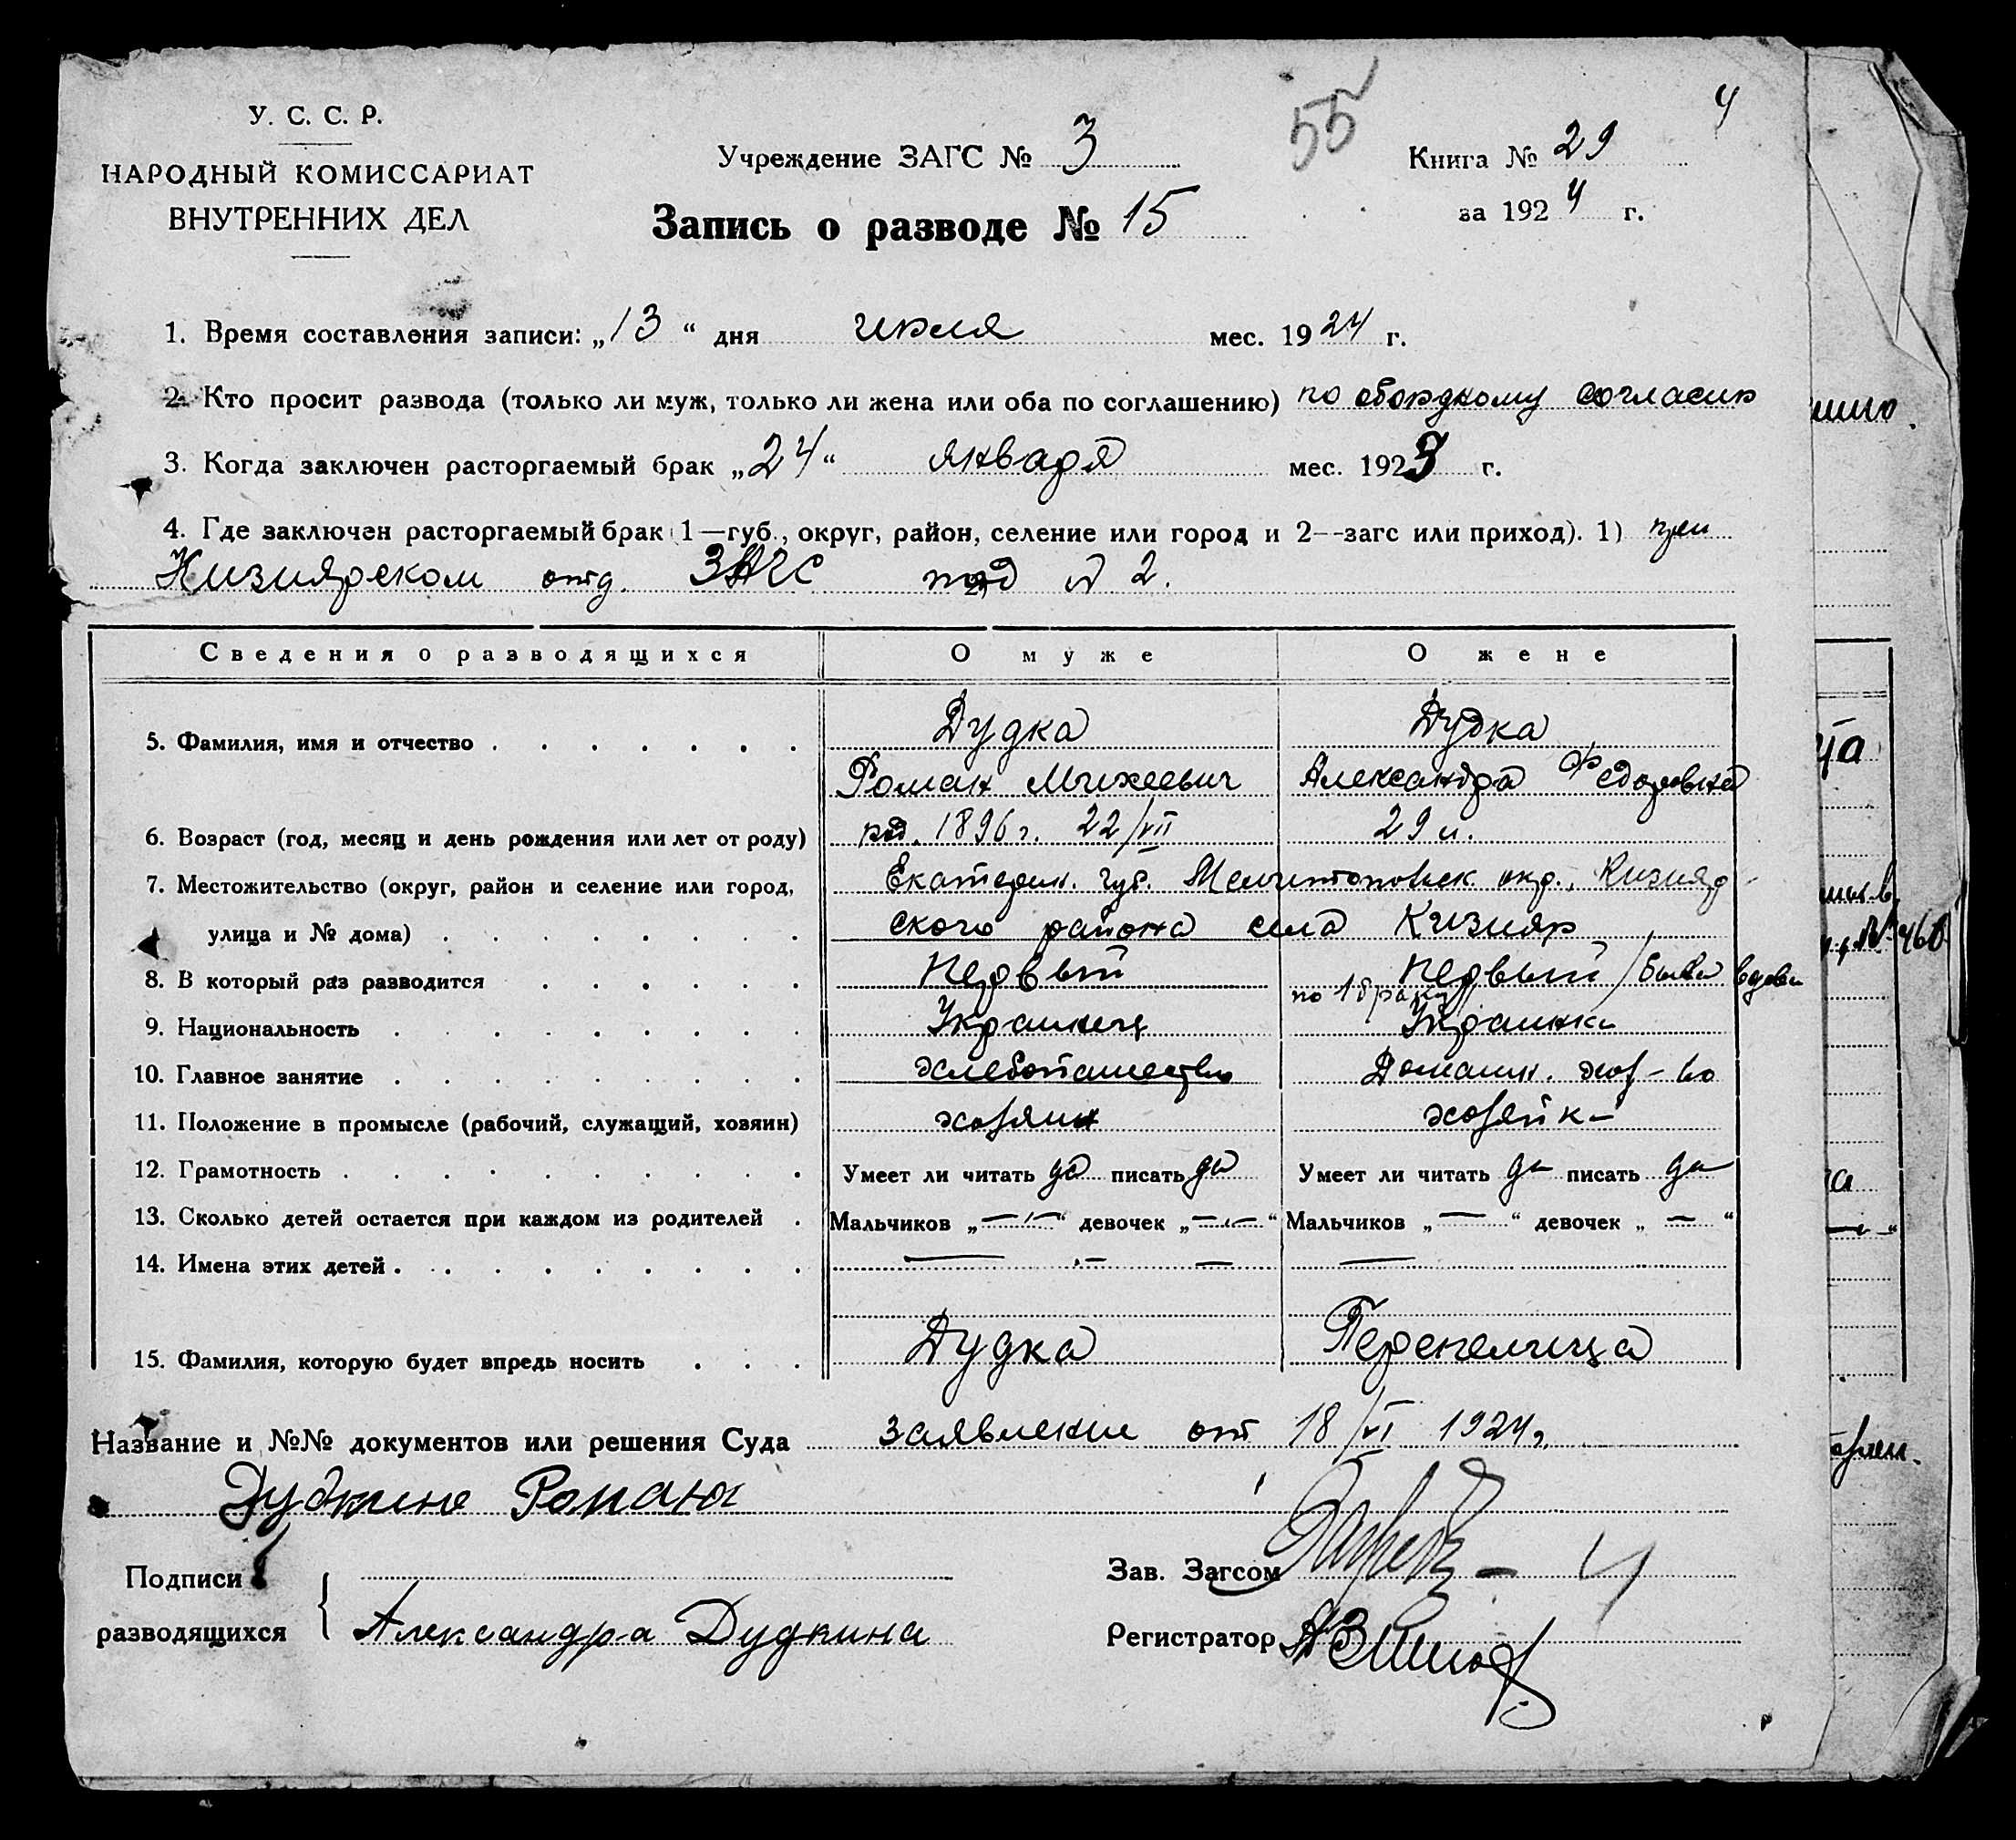 У. С. С. Р.
НАРОДНЫЙ КОМИССАРИАТ
ВНУТРЕННИХ ДЕЛ
Учреждение ЗАГС № 3
55
4
Книга № 29
за 1924 г.
Запись о разводе № 15
1. Время составления записи: „13“ дня июля мес. 1924 г.
2. Кто просит развода (только ли муж, только ли жена или оба по соглашению) по обоюдному согласию
3. Когда заключен расторгаемый брак „24“ января мес. 1923 г.
4. Где заключен расторгаемый брак (1—губ., округ, район, селение или город и 2—загс или приход). 1) при
Кизиярском отд. ЗАГС 2) под № 2.
Сведения о разводящихся О муже О жене
5. Фамилия, имя и отчество Дудка Дудка
Роман Михеевич Александра Федоровна
6. Возраст (год, месяц и день рождения или лет от роду) род. 1896 г. 22/VII 29 л.
7. Местожительство (округ, район и селение или город, Екатерин. губ. Мелитопольск. окр., Кизияр-
улица и № дома) ского района села Кизияр
8. В который раз разводится Первый Первый / была вдова
по 1 браку
9. Национальность Украинец Украинка
10. Главное занятие хлебопашество Домашн. хоз-во
11. Положение в промысле (рабочий, служащий, хозяин) хозяин хозяйка
12. Грамотность Умеет ли читать да писать да Умеет ли читать да писать да
13. Сколько детей остается при каждом из родителей Мальчиков „—“ девочек „—“ Мальчиков „—“ девочек „—“
14. Имена этих детей — — — —
15. Фамилия, которую будет впредь носить Дудка Перепелица
Название и №№ документов или решения Суда заявление от 18/VI 1924 г.
Роман
Подписи
разводящихся Александра Дудкина
Зав. Загсом
Регистратор